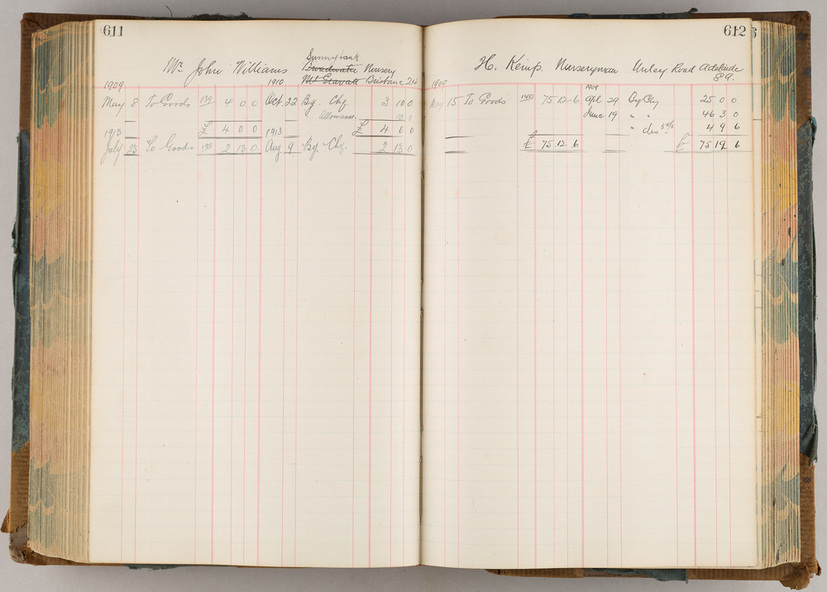 611
Sunnybank
Mr. John Williams Broadwater Nursery
Mt Gravatt Brisbane
1909 1910
May 8 To Goods 4 0 0 Oct. 22 By Chq. 3 10 0
Allowance 10 0
£ 4 0 0 £ 4 0 0
1913 1913
July 23 To Goods 2 13 0 Aug 9 By Chq. 2 13 0
612
H. Kemp. Nurseryman Unley Road Adelaide
S.A.
1909 1909
15 To Goods 75 12 6 Apl 29 By Chq 25 0 0
June 19 " " 46 3 0
" dis 5% 4 9 6
£ 75 12 6 £ 75 12 6